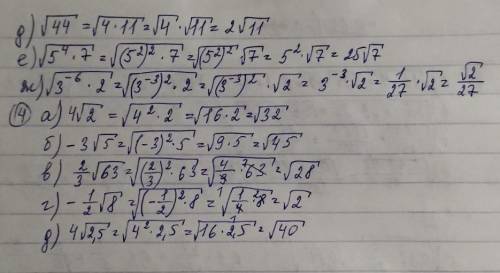 д) √44 = √(4·11) = √4 · √11 = 2√11
е) √(5⁴·7) = √((5²)²·7) = √((5²)²) √7 = 5²·√7 = 25√7
ж) √(3⁻⁶·2) = √((3⁻³)²·2) = √((3⁻³)²) · √2 = 3⁻³·√2 = 1/27 · √2 = √2/27
14 а) 4√2 = √(4²·2) = √(16·2) = √32
б) -3√5 = √((-3)²·5) = √(9·5) = √45
в) 2/3 √63 = √((2/3)²·63) = √(4/9 · 63 ⁷) = √28
г) -1/2 √8 = √((-1/2)²·8) = √(¹ 1/4 · ² 8) = √2
д) 4√2,5 = √(4²·2,5) = √(16·2,5) = √40